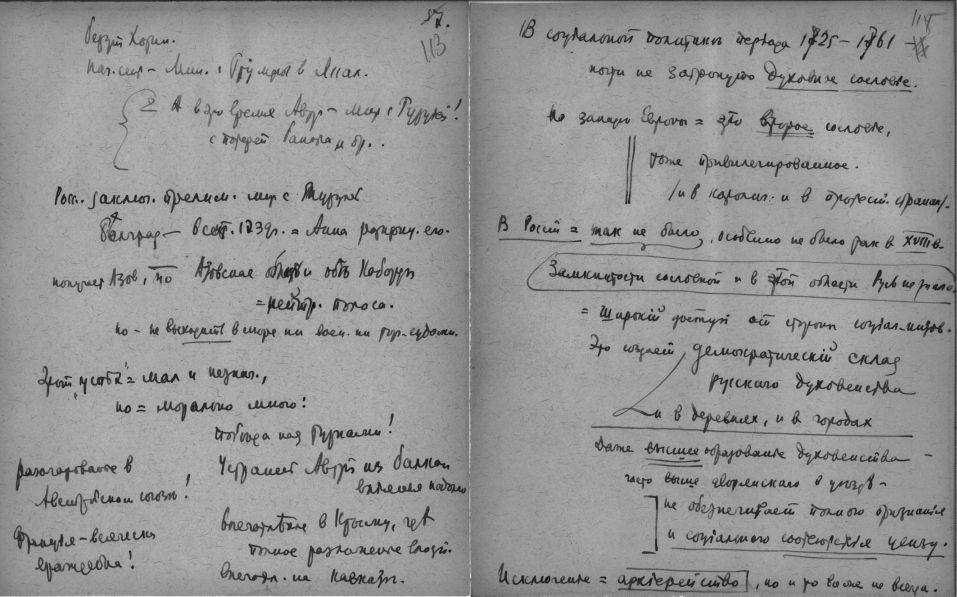 113
берут Хотин.
А в это время Австр. – мир с Турцией!
с потерей и др.
Росс. заключ. прелим. мир с Турцией
Белград – в сент. 1739г. = Анна
получает Азов, но Азовская область и обе Кабарды
= нейтр. полоса.
но – не выходить в море ни воен. ни торг. судами.
Этот успех = мал и
но = морально много!
победа над Турками!
разочарование в
Австрийском союзе!
Устранен. Австр. из Балкан
Франция – всячески
враждебна!
впечатление в Крыму, где
полное разложение
впечатл. на Кавказе.
118
В социальной политике периода 1725 – 1761 –
почти не затронуто духовное сословие.
На западе Европы = это второе сословие,
тоже привилегированное.
/и в католич. и в протест. странах/.
В России = так не было, особенно не было так в XVIII в.
Замкнутости сословной и в этой области Русь не знала.
= широкий доступ от стороны социал. низов.
Это создает демократический склад
русского духовенства
и в деревнях, и в городах
Даже высшее образование духовенства –
часто выше дворянского в уезде –
не обеспечивает полного признания
и социального соответствия цензу.
Исключение = архиерейство, но и то даже не всегда.